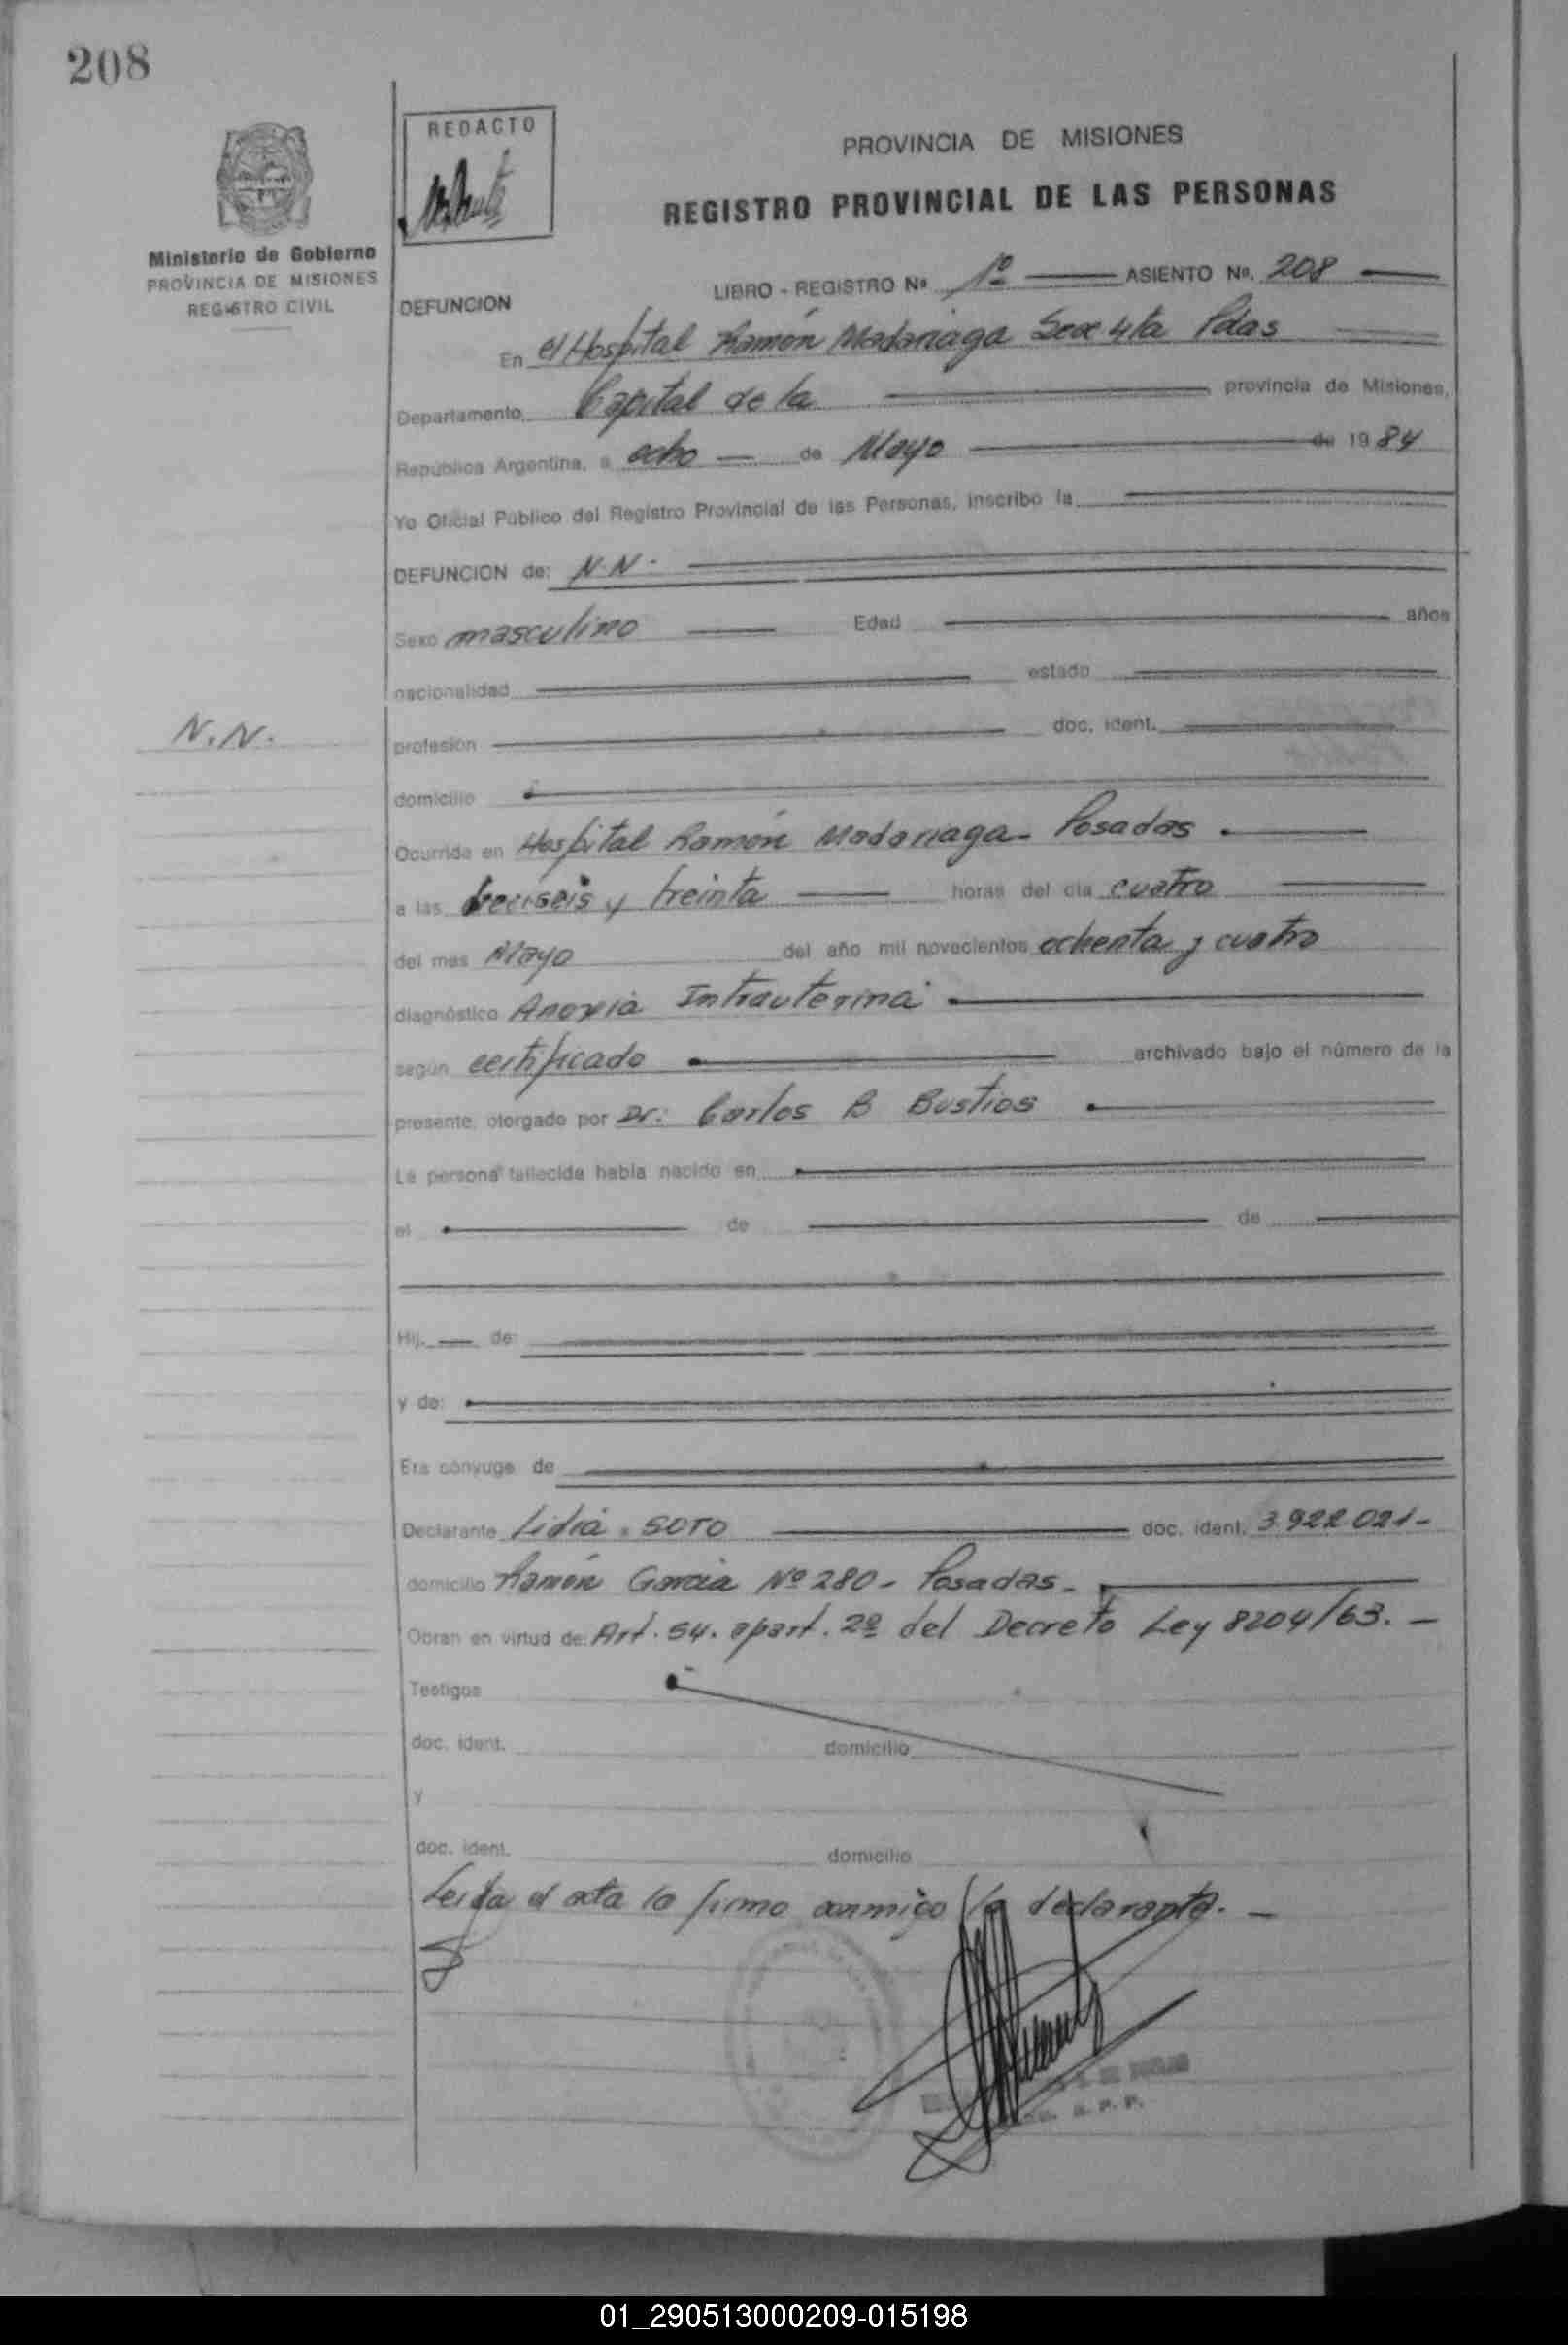 208
REDACTO
PROVINCIA DE MISIONES
REGISTRO PROVINCIAL DE LAS PERSONAS
Ministerio de Gobierno
PROVINCIA DE MISIONES
REGISTRO CIVIL
LIBRO - REGISTRO Nº 1º ASIENTO Nº. 208
DEFUNCION
En el Hospital Ramón Madariaga Secc 4ta Pdas
Departamento Capital de la provincia de Misiones,
República Argentina, a ocho de Mayo de 1984
Yo Oficial Público del Registro Provincial de las Personas, inscribo la
DEFUNCION de: N.N.
Sexo masculino Edad años
nacionalidad estado
N.N.
profesión doc. ident.
domicilio
Ocurrida en Hospital Ramón Madariaga - Posadas.
a las dieciseis y treinta horas del día cuatro
del mes Mayo del año mil novecientos ochenta y cuatro
diagnóstico Anoxia Intrauterina
según certificado archivado bajo el número de la
presente, otorgado por Dr: Carlos B Bustios
La persona fallecida había nacido en
el de de
Hij. de:
y de:
Era cónyuge de
Declarante Lidia SOTO doc. ident. 3.922.021-
domicilio Ramón Garcia Nº 280 - Posadas -
Obran en virtud de: Art. 54. apart. 2º del Decreto Ley 8204/63. -
Testigos
doc. ident. domicilio
y
doc. ident. domicilio
Leida el acta la firma conmigo la declarante. -
R. P. P.
01_290513000209-015198